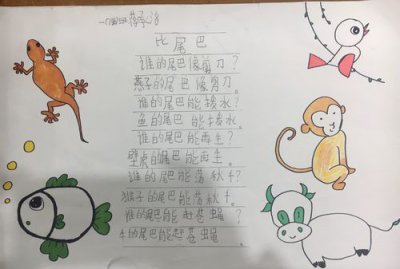 比尾巴
谁的尾巴像剪刀？
燕子的尾巴像剪刀。
谁的尾巴能拨水？
鱼的尾巴能拨水。
谁的尾巴能再生？
壁虎的尾巴能再生。
谁的尾巴能荡秋千？
猴子的尾巴能荡秋千。
谁的尾巴能赶苍蝇？
牛的尾巴能赶苍蝇。